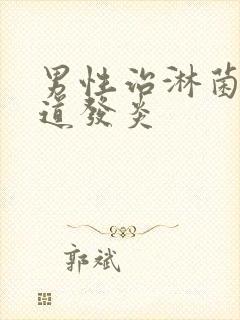 男性治淋菌
道發炎
郭斌